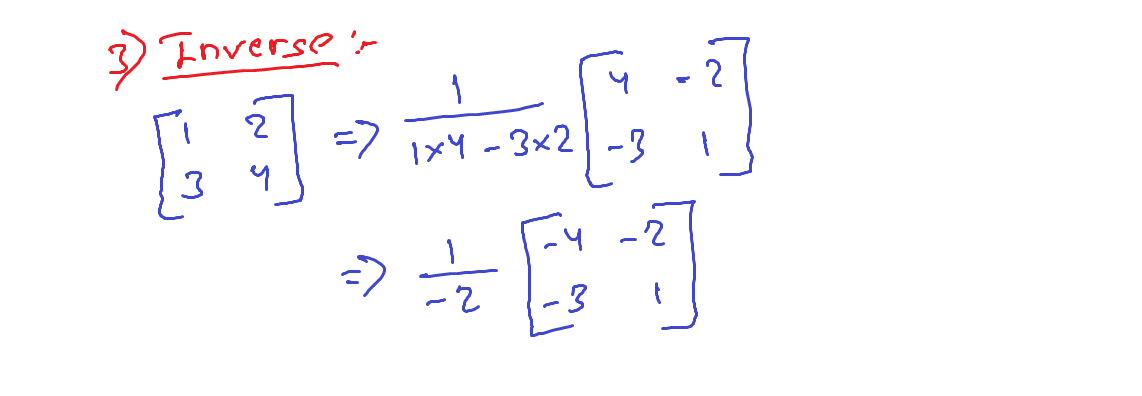 3) Inverse :-
[1 2
3 4] => 1/(1×4 - 3×2) [4 -2
-3 1]
=> 1/-2 [-4 -2
-3 1]